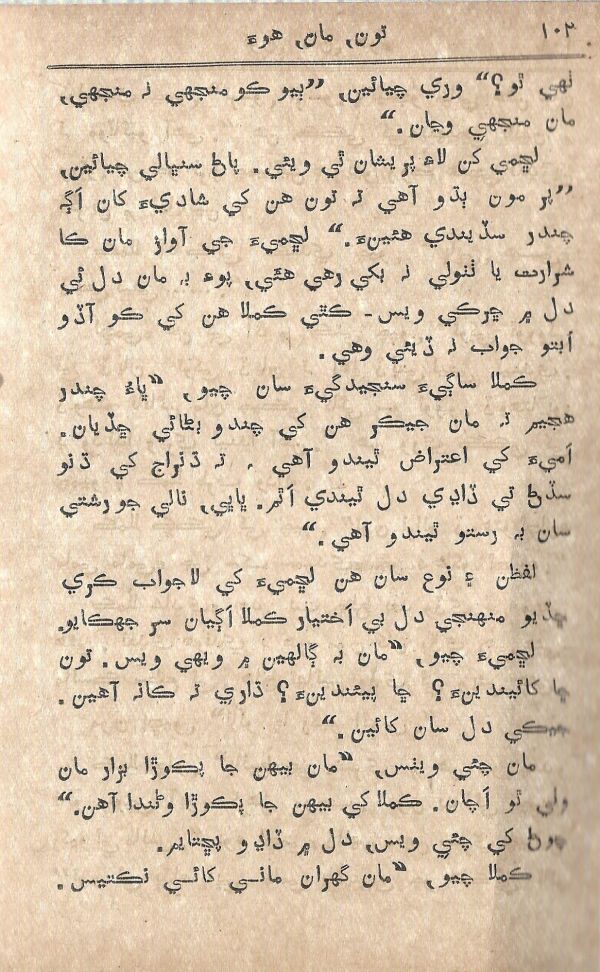 ١٠٢
تون، مان، هوءَ
ٺهي ٿو؟“ وري چيائين، ”ٻيو ڪو منجهي نہ منجهي،
مان منجهي وڃان.“
لڇمي کن لاءِ پريشان ٿي ويئي. پاڻ سنڀالي چيائين،
”پر مون ٻڌو آهي تہ تون هن کي شاديءَ کان اڳ
چندر سڏيندي هئينءَ.“ لڇميءَ جي آواز مان ڪا
شرارت يا ٺٺولي نہ بکي رهي هئي، پوءِ بہ مان دل ئي
دل ۾ ڇرڪي ويس۔ ڪٿي ڪملا هن کي ڪو آڏو
اُبتو جواب نہ ڏيئي وهي.
ڪملا ساڳيءَ سنجيدگيءَ سان چيو، ”ڀاءُ چندر
هجيم تہ مان جيڪر هن کي چندو بڻائي ڇڏيان.
اَميءَ کي اعتراض ٿيندو آهي، تہ ڌنراج کي ڌنو
سڏڻ تي ڏاڍي دل ٿيندي اَٿم. ڀاڀي، نالي جو رشتي
سان بہ رستو ٿيندو آهي.“
لفظن ۽ نوع سان هن لڇميءَ کي لاجواب ڪري
ڇڏيو منهنجي دل بي اَختيار ڪملا اَڳيان سر جهڪايو.
لڇميءَ چيو، ”مان بہ ڳالهين ۾ ويهي ويس. تون
ڇا کائيندينءَ؟ ڇا پيئندينءَ؟ ڌاري تہ ڪانہ آهين.
جيڪي دل سان کائين.“
مان چئي ويٺس، ”مان ٻيهن جا پڪوڙا بزار مان
وٺي ٿو اَچان. ڪملا کي ٻيهن جا پڪوڙا وڻندا آهن.“
چوڻ کي چئي ويس، دل ۾ ڏاڍو پڇتايم.
ڪملا چيو، ”مان گهران ماني کائي نڪتيس.